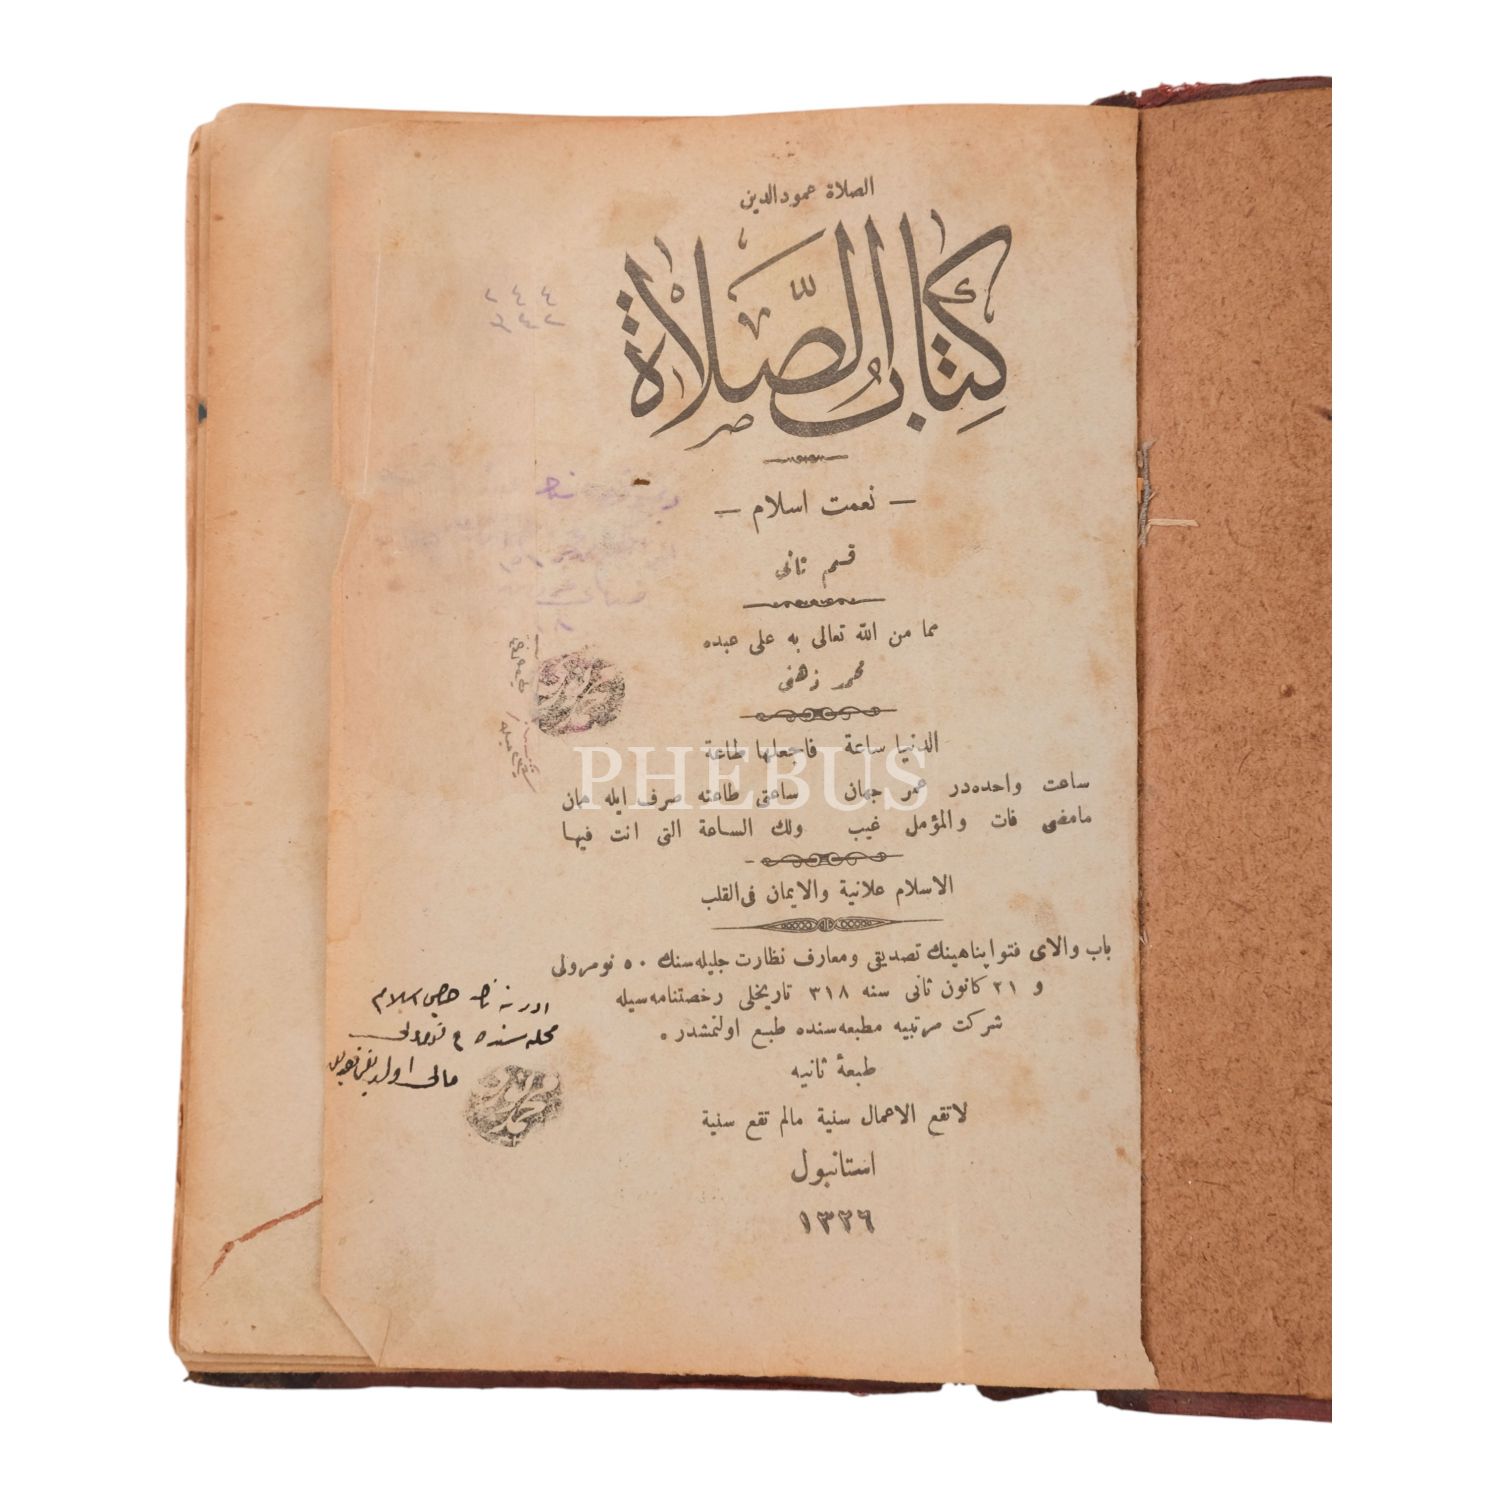 الصلاة عمود الدين
كِتَابُ الصَّلَاة
— نعمت اسلام —
قسم ثانی
مما من الله تعالى به على عبده
محمد ذهنی
الدنيا ساعة فاجعلها طاعة
ساعت واحده در عمر جهان ساعتی طاعته صرف ایله همان
مامضى فات والمؤمل غيب ولك الساعة التى انت فيها
الاسلام علانية والايمان فى القلب
باب والای فتوا پناهینك تصدیقی ومعارف نظارت جلیله سنك ٥٠ نومرولی
و ٢١ كانون ثانی سنه ٣١٨ تاریخلی رخصتنامه سیله
شركت مرتبیه مطبعه سنده طبع اولنمشدر .
طبعۀ ثانیه
لاتقع الاعمال سنية مالم تقع سنية
استانبول
١٣٢٦
محله سنده
PHEBUS